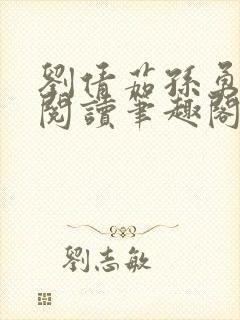 劉倩茹孫勇
閱讀筆趣閣
劉志敏